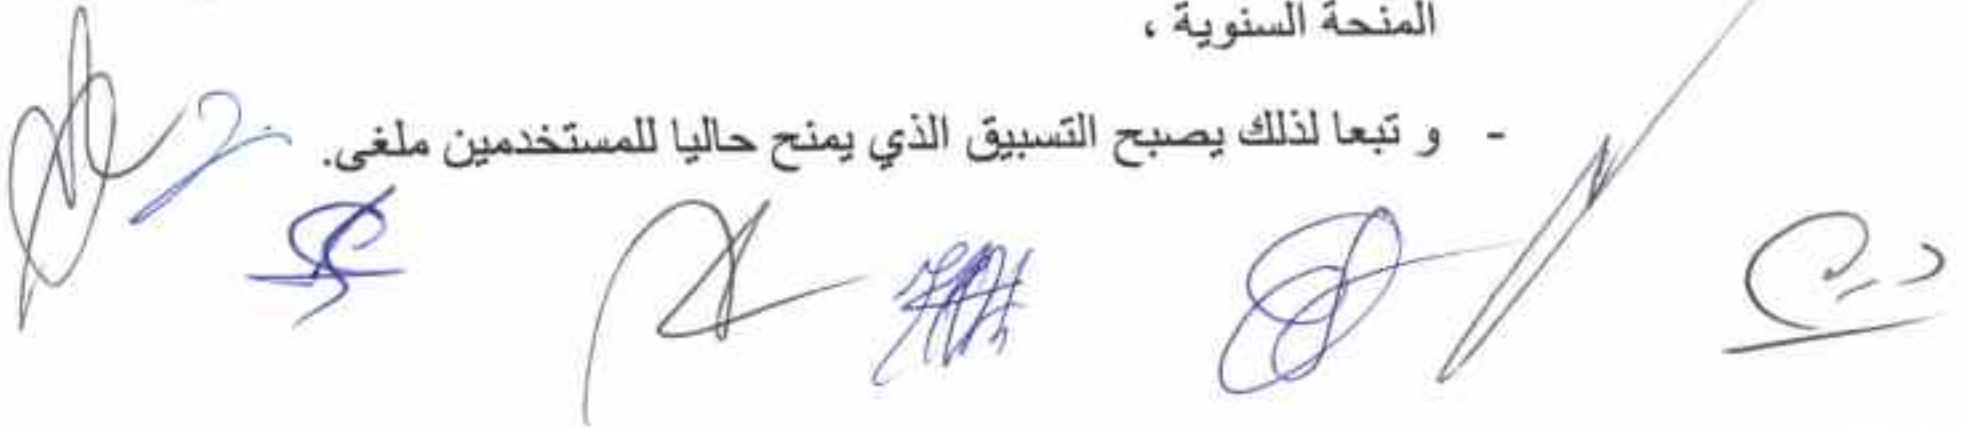 المنحة السنوية ،
- و تبعا لذلك يصبح التسبيق الذي يمنح حاليا للمستخدمين ملغى.